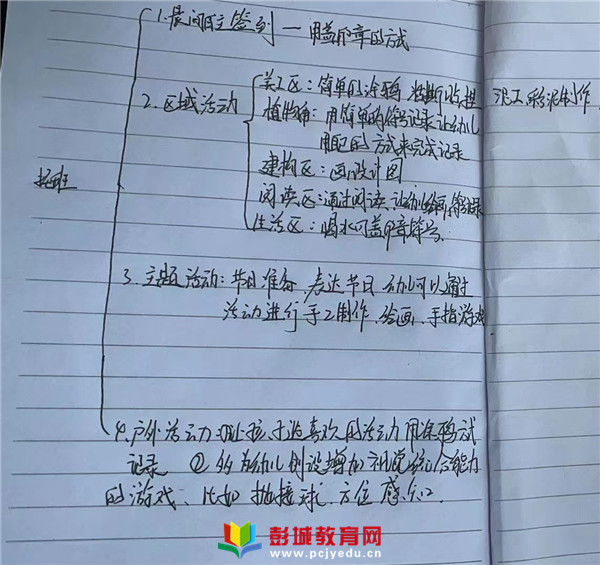 1. 晨间自主签到 — 用盖印章的方式
2. 区域活动
美工区：简单的涂鸦 粘撕贴挂 泥工、彩泥制作
植物角：用简单的符号记录 让幼儿
用自己的方式来完成记录
建构区：画设计图
阅读区：通过阅读、让幼儿绘画、符号记录
生活区：喝水可盖印章符号、
托班
3. 主题活动：节日准备、表达节日 幼儿可以通过
活动进行手工制作、绘画、手指游戏
4. 户外活动 选喜欢的活动 用涂鸦式
记录 ② 多为幼儿创设增加视觉统合能力
的游戏、比如抛接球、方位感知
彭城教育网
www.pcjyedu.cn